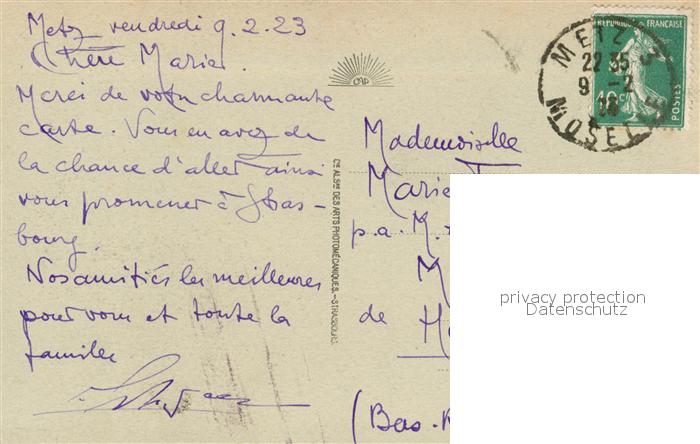 Metz vendredi 9.2.23
Chère Marie.
Merci de votre charmante
carte. Vous en avez de
la chance d'aller ainsi
vous promener à Stras-
bourg.
Nos amitiés les meilleures
pour vous et toute la
famille
CAP
Cie ALSne DES ARTS PHOTOMÉCANIQUES.-STRASBOURG
RÉPUBLIQUE FRANÇAISE
10c
POSTES
METZ 3
22 35
9 -2
23
MOSELLE
Mademoiselle
Marie
p.a. M.
M
de
(Bas-R
privacy protection
Datenschutz